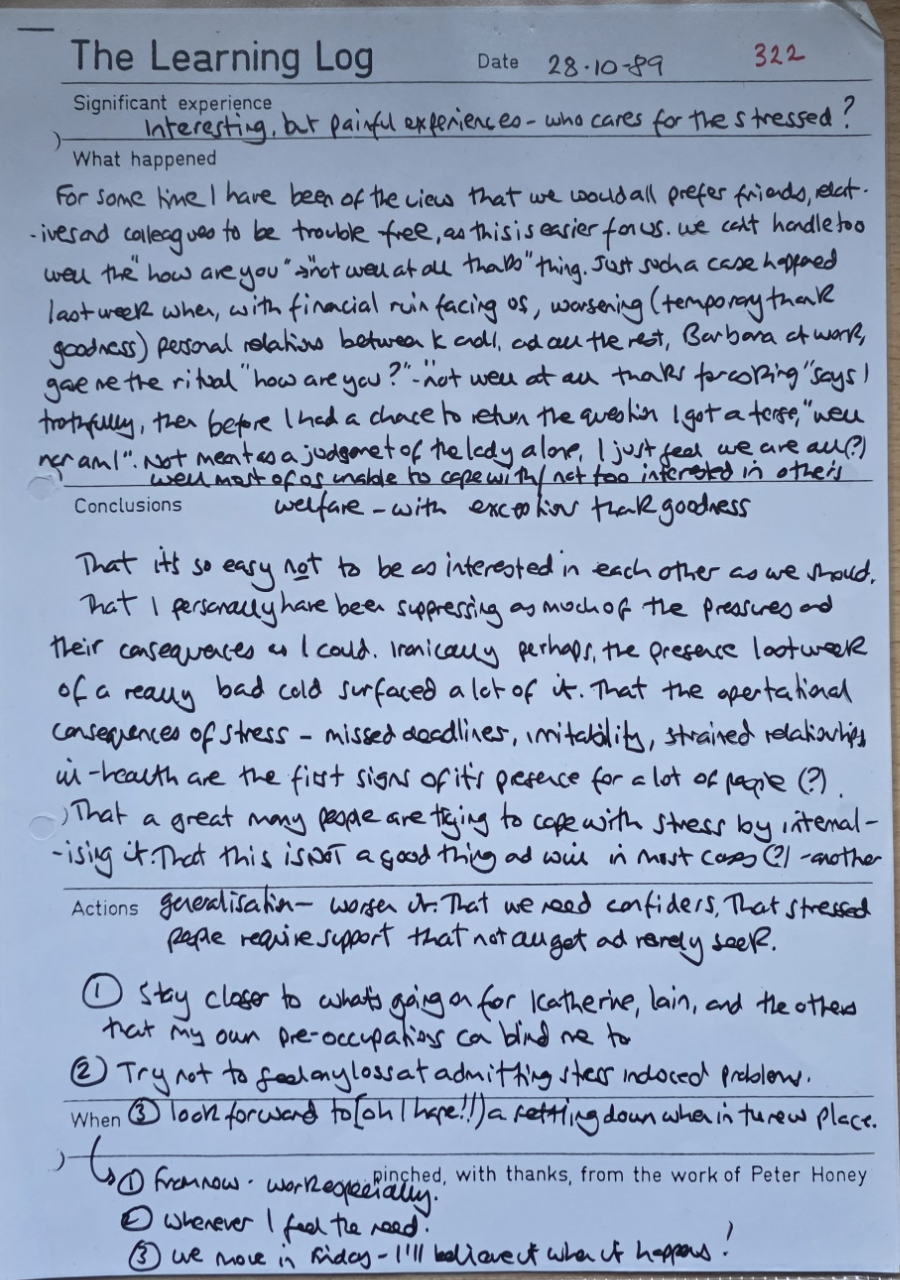 The Learning Log Date 28.10.89 322
Significant experience
Interesting, but painful experiences - who cares for the stressed?
What happened
For some time I have been of the view that we would all prefer friends, relat-
-ives and colleagues to be trouble free, as this is easier for us. we can't handle too
well the "how are you" → "not well at all thanks" thing. Just such a case happened
last week when, with financial ruin facing us, worsening (temporary thank
goodness) personal relations between K and I, and all the rest, Barbara at work,
gave me the ritual "how are you?" - "not well at all thanks for asking" says I
truthfully, then before I had a chance to return the question I got a terse, "well
nor am I". Not meant as a judgement of the lady alone, I just feel we are all (?)
well most of us unable to cope with / not too interested in others
Conclusions welfare - with exceptions thank goodness
That it's so easy not to be as interested in each other as we should.
That I personally have been suppressing as much of the pressures and
their consequences as I could. Ironically perhaps, the presence last week
of a really bad cold surfaced a lot of it. That the opertational
consequences of stress - missed deadlines, irritability, strained relationships
ill-health are the first signs of it's presence for a lot of people (?).
That a great many people are trying to cope with stress by internal-
-ising it. That this is NOT a good thing and will in most cases (?) - another
Actions generalisation - worsen it. That we need confiders, That stressed
people require support that not all get and rarely seek.
① Stay closer to what's going on for Katherine, Iain, and the others
that my own pre-occupations can blind me to
② Try not to feel any loss at admitting stress induced problems.
When ③ look forward to (oh I hope!!) a settling down when in the new place.
pinched, with thanks, from the work of Peter Honey
① From now - work especially.
② whenever I feel the need.
③ we move in Friday - I'll believe it when it happens!